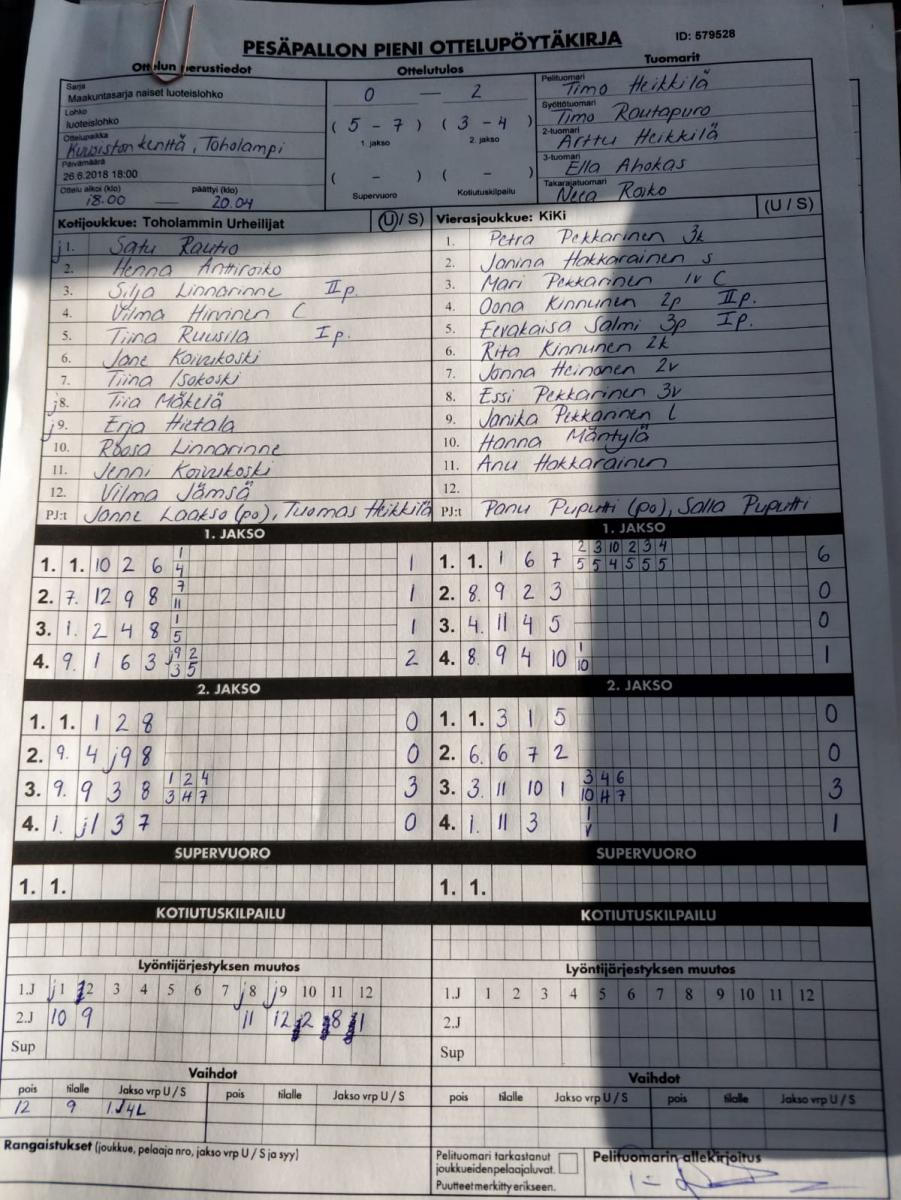 PESÄPALLON PIENI OTTELUPÖYTÄKIRJA
ID: 579528
Ottelun perustiedot
Ottelutulos
Tuomarit
Sarja
Maakuntasarja naiset luoteislohko
Lohko
luoteislohko
Ottelupaikka
kenttä, Toholampi
Päivämäärä
26.6.2018 18:00
Ottelu alkoi (klo) päättyi (klo)
18.00 — 20.04
0 — 2
( 5 - 7 ) ( 3 - 4 )
1. jakso 2. jakso
( - ) ( - )
Supervuoro Kotiutuskilpailu
Pelituomari
Timo Heikkilä
Syöttötuomari
Timo Rautapuro
2-tuomari
Arttu Heikkilä
3-tuomari
Ella Ahokas
Takarajatuomari
Neea Raiko
Kotijoukkue: Toholammin Urheilijat (U/ S)
j1. Satu Rautio
2. Henna Anttiroiko
3. Silja Linnarinne IIp.
4. Vilma Hirvinen C
5. Tiina Ruusila Ip.
6. Jane Koivukoski
7. Tiina Isokoski
j8. Tiia Mäkelä
j9. Erja Hietala
10. Roosa Linnarinne
11. Jenni Koivukoski
12. Vilma Jämsä
PJ:t Janne Laakso (po), Tuomas Heikkilä
Vierasjoukkue: KiKi (U / S)
1. Petra Pekkarinen 3k
2. Janina Hakkarainen s
3. Mari Pekkarinen 1v C
4. Oona Kinnunen 2p IIp.
5. Eevakaisa Salmi 3p Ip.
6. Rita Kinnunen 2k
7. Jonna Heinonen 2v
8. Essi Pekkarinen 3v
9. Janika Pekkarinen l
10. Hanna Mäntylä
11. Anu Hakkarainen
12.
PJ:t Panu Puputti (po), Salla Puputti
1. JAKSO
1 
1. 1. 10 2 6 4 1
7
2. 7. 12 9 8 11 1
1
3. 1. 2 4 8 5 1
j9 2
4. 9. 1 6 3 3 5 2
1. JAKSO
2 3 10 2 3 4
1. 1. 1 6 7 5 5 4 5 5 5 6
2. 8. 9 2 3 0
3. 4. 11 4 5 0
1
4. 8. 9 4 10 10 1
2. JAKSO
1. 1. 1 2 8 0
2. 9. 4 j9 8 0
1 2 4
3. 9. 9 3 8 3 H 7 3
4. 1. j1 3 7 0
2. JAKSO
1. 1. 3 1 5 0
2. 6. 6 7 2 0
3 4 6
3. 3. 11 10 1 10 H 7 3
1
4. 1. 11 3 V 1
SUPERVUORO
1. 1.
SUPERVUORO
1. 1.
KOTIUTUSKILPAILU
KOTIUTUSKILPAILU
Lyöntijärjestyksen muutos
1.J j1 2 3 4 5 6 7 j8 j9 10 11 12
2.J 10 9 11 12
Sup
Lyöntijärjestyksen muutos
1.J 1 2 3 4 5 6 7 8 9 10 11 12
2.J
Sup
Vaihdot
pois tilalle Jakso vrp U / S pois tilalle Jakso vrp U / S
12 9 1J4L
Vaihdot
pois tilalle Jakso vrp U / S pois tilalle Jakso vrp U / S
Rangaistukset (joukkue, pelaaja nro, jakso vrp U / S ja syy)
Pelituomari tarkastanut
joukkueiden pelaajaluvat.
Puutteet merkitty erikseen.
Pelituomarin allekirjoitus